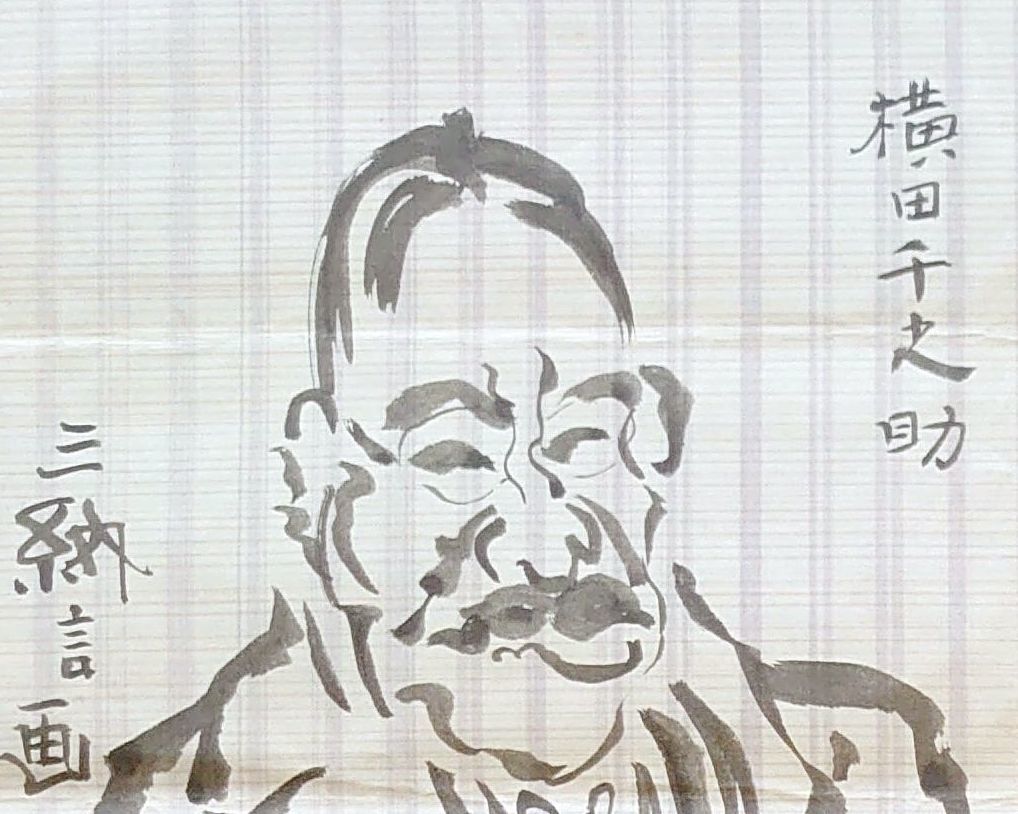 横田千之助
三納言画